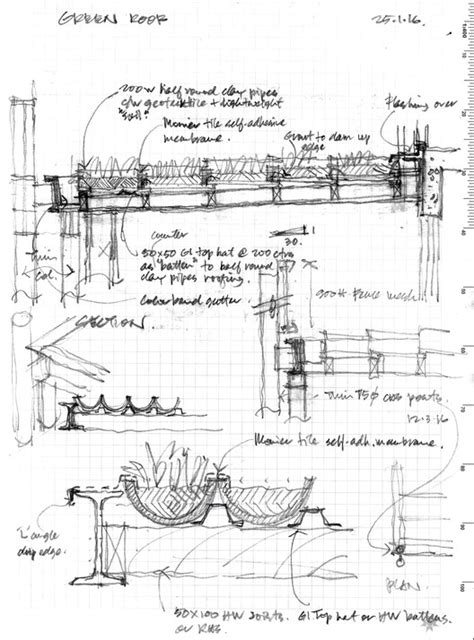 GREEN ROOF
25.1.16.
200 ⌀ half round clay pipes
c/w geotextile + lightweight
"soil"
Monier tile self-adhesive
membrane.
Grout to dam up
edge
Flashing over
1
30.
counter
50x50 GI top hat @ 200 ctrs
as "batten" to half round
clay pipes roofing.
Colourbond gutter
SECTION.
900H Fence mesh
posts.
12.3.16
Monier tile self-adh. membrane.
'L' angle
drip edge.
PLAN.
50x100 HW Joists.
GI Top hat or HW battens
or RHS